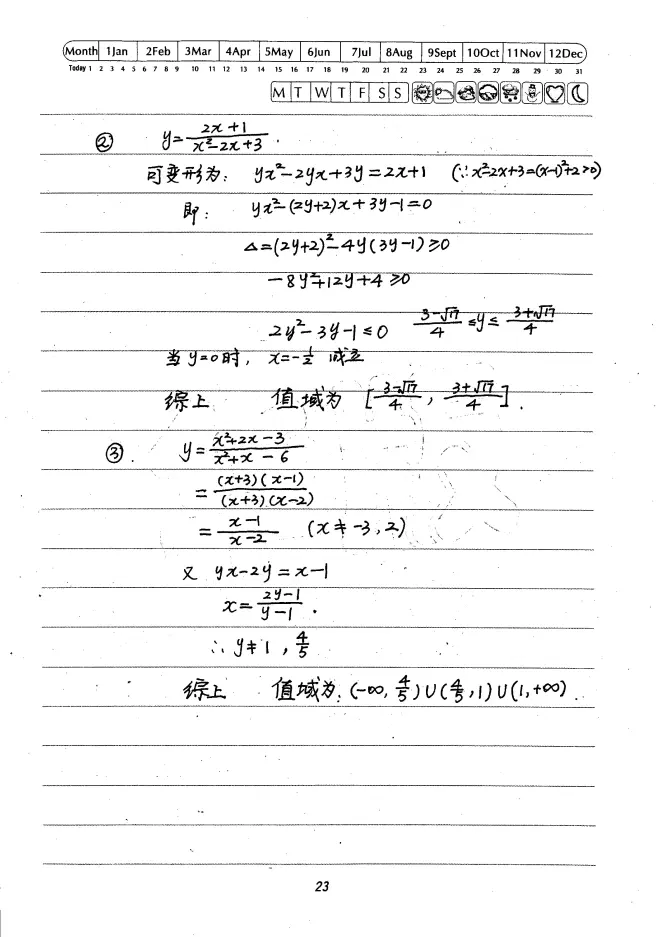 Month 1Jan 2Feb 3Mar 4Apr 5May 6Jun 7Jul 8Aug 9Sept 10Oct 11Nov 12Dec
Today 1 2 3 4 5 6 7 8 9 10 11 12 13 14 15 16 17 18 19 20 21 22 23 24 25 26 27 28 29 30 31
M T W T F S S
② y=\frac{2x+1}{x²-2x+3}.
可变形为: yx²-2yx+3y=2x+1 (∵x²-2x+3=(x-1)²+2>0)
即: yx²-(2y+2)x+3y-1=0
Δ=(2y+2)²-4y(3y-1)≥0
-8y²+12y+4≥0
2y²-3y-1≤0 \frac{3-√17}{4}≤y≤\frac{3+√17}{4}
当y=0时, x=-\frac{1}{2} 成立
综上 值域为 [\frac{3-√17}{4}, \frac{3+√17}{4}].
③. y=\frac{x²+2x-3}{x²+x-6}
=\frac{(x+3)(x-1)}{(x+3)(x-2)}
=\frac{x-1}{x-2} (x≠-3,2)
又 yx-2y=x-1
x=\frac{2y-1}{y-1}.
∴y≠1,\frac{4}{5}
综上 值域为:(-∞,\frac{4}{5})∪(\frac{4}{5},1)∪(1,+∞).
23